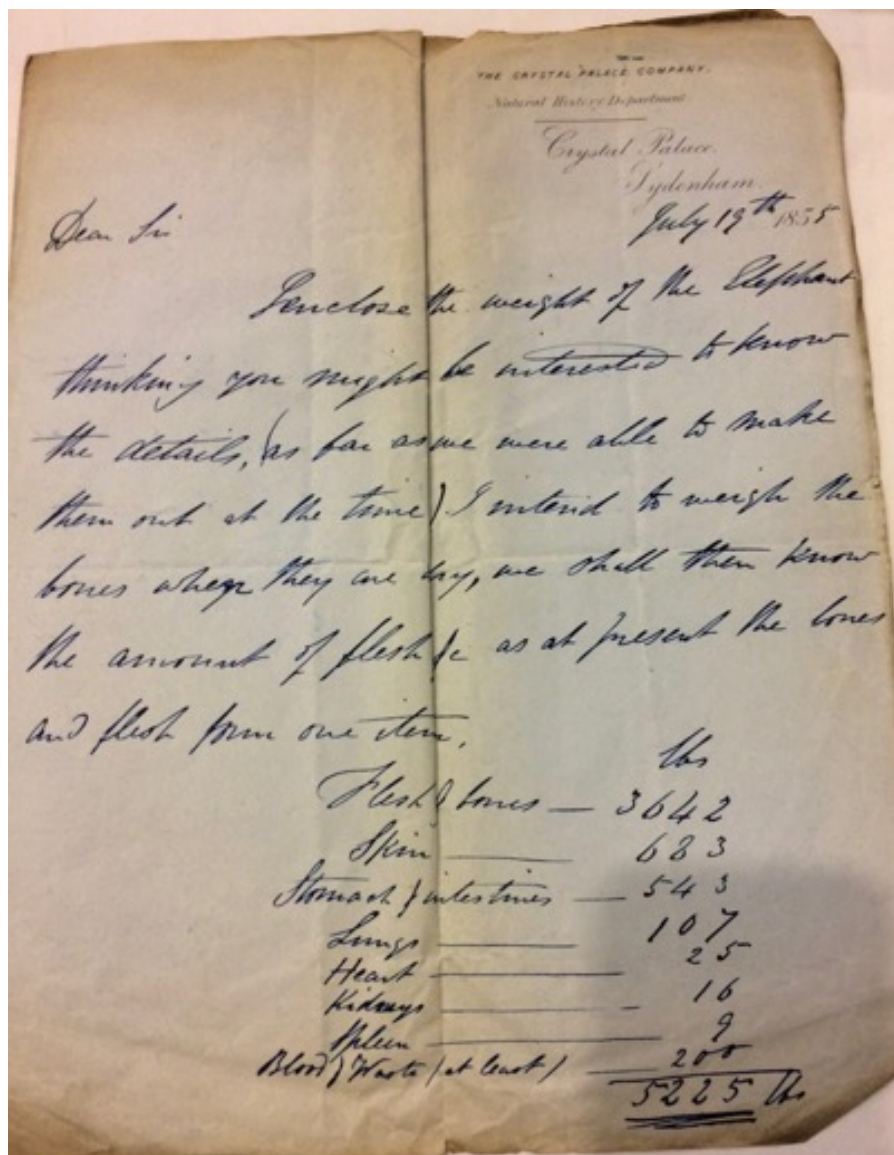 THE CRYSTAL PALACE COMPANY.
Natural History Department
Crystal Palace.
Sydenham.
July 19th 1855
Dear Sir
I enclose the weight of the Elephant
thinking you might be interested to know
the details, (as far as we were able to make
them out at the time) I intend to weigh the
bones when they are dry, we shall then know
the amount of flesh &c as at present the bones
and flesh form one item.
lbs
Flesh & bones — 3642
Skin — 683
Stomach & intestines — 543
Lungs — 107
Heart — 25
Kidneys — 16
Spleen — 9
Blood & Waste (at least) — 200
5225 lbs